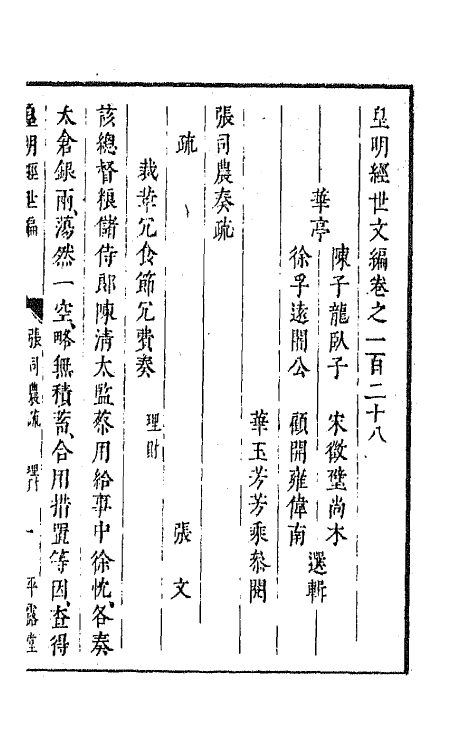 皇明經世文編卷之一百二十八
華亭
陳子龍臥子 宋徵璧尚木
徐孚遠闇公 顧開雍偉南
選輯
華玉芳芳乘叅閱
張司農奏疏
疏 張文
裁革冗食節冗費奏 理財
該總督粮儲侍郎陳清太監蔡用給事中徐忱、各奏
太倉銀兩、蕩然一空、略無積蓄、合用措置等因、查得
皇明經世編 張司農疏 理財 一 平露堂